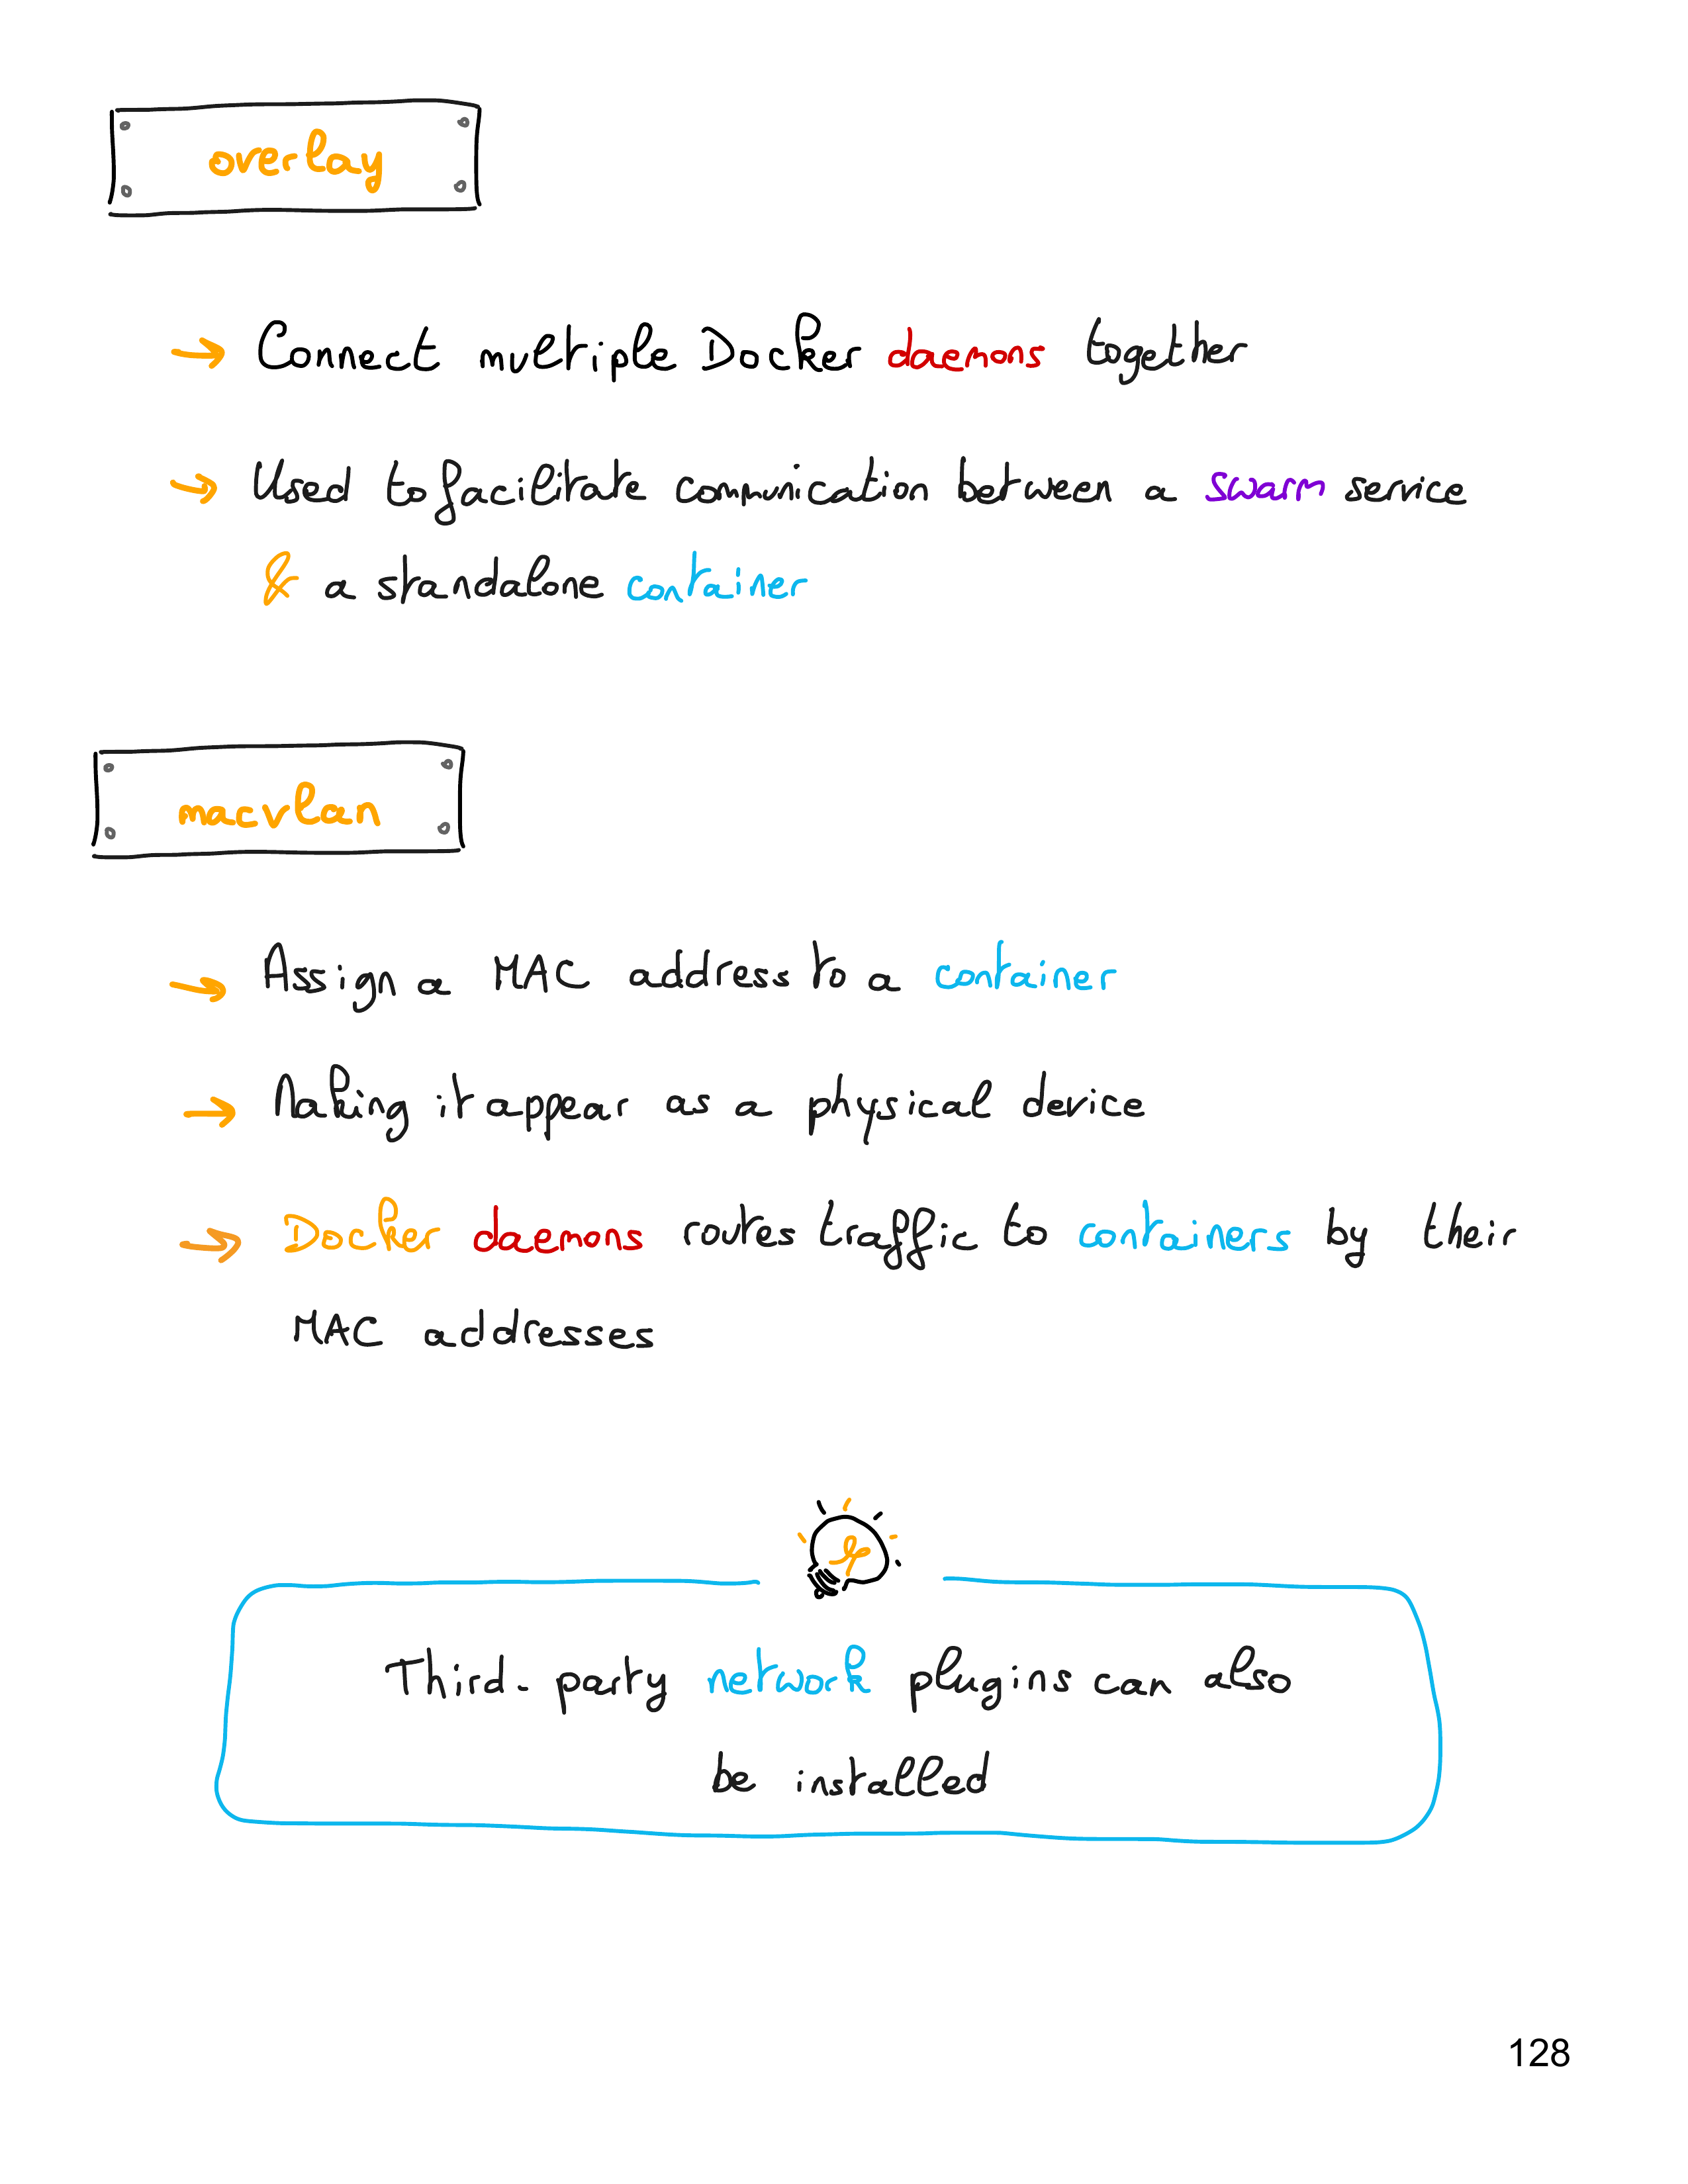 overlay
→ Connect multiple Docker daemons together
→ Used to facilitate communication between a swarm service
& a standalone container
macvlan
→ Assign a MAC address to a container
→ Making it appear as a physical device
→ Docker daemons routes traffic to containers by their
MAC addresses
Third-party network plugins can also
be installed
128